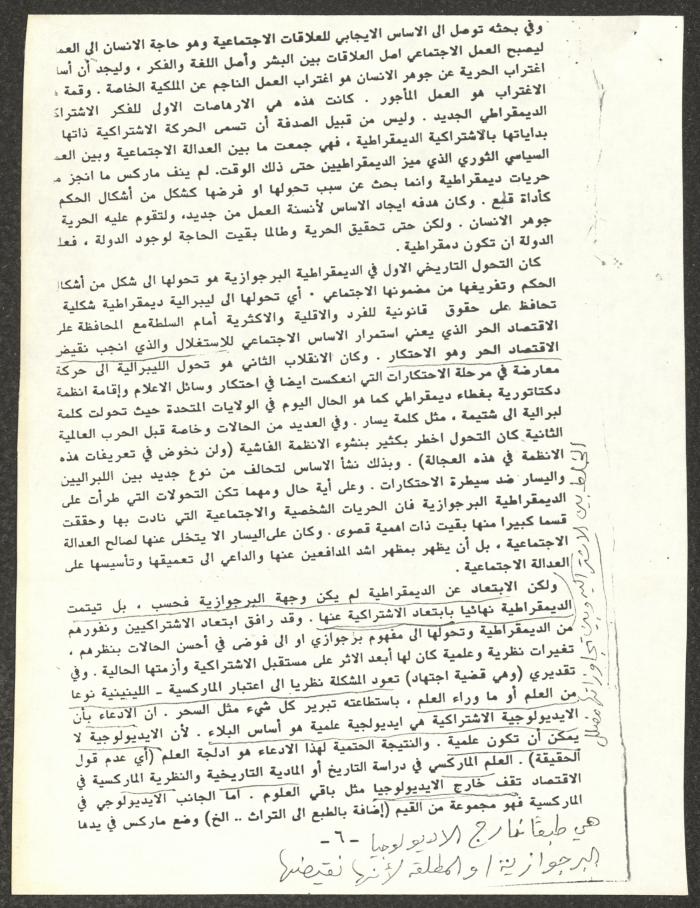 وفي بحثه توصل الى الاساس الايجابي للعلاقات الاجتماعية وهو حاجة الانسان الى
ليصبح العمل الاجتماعي اصل العلاقات بين البشر وأصل اللغة والفكر ، وليجد أن
اغتراب الحرية عن جوهر الانسان هو اغتراب العمل الناجم عن الملكية الخاصة . وقمة
الاغتراب هو العمل المأجور . كانت هذه هي الارهاصات الاولى للفكر
الديمقراطي الجديد . وليس من قبيل الصدفة أن تسمى الحركة الاشتراكية ذاتها
بداياتها بالاشتراكية الديمقراطية ، فهي جمعت ما بين العدالة الاجتماعية وبين
السياسي الثوري الذي ميز الديمقراطيين حتى ذلك الوقت. لم ينف ماركس ما انجز
حريات ديمقراطية وانما بحث عن سبب تحولها او فرضها كشكل من أشكال الحكم
كأداة قمع . وكان هدفه ايجاد الاساس لأنسنة العمل من جديد، ولتقوم عليه الحرية
جوهر الانسان . ولكن حتى تحقيق الحرية وطالما بقيت الحاجة لوجود الدولة ،
الدولة ان تكون دمقراطية .
كان التحول التاريخي الاول في الديمقراطية البرجوازية هو تحولها الى شكل من
الحكم وتفريغها من مضمونها الاجتماعي . أي تحولها الى ليبرالية ديمقراطية شكلية
تحافظ على حقوق قانونية للفرد والاقلية والاكثرية أمام السلطة مع المحافظة
الاقتصاد الحر الذي يعني استمرار الاساس الاجتماعي للاستغلال والذي انجب نقيض
الاقتصاد الحر وهو الاحتكار . وكان الانقلاب الثاني هو تحول الليبرالية الى حركة
معارضة في مرحلة الاحتكارات التي انعكست ايضا في احتكار وسائل الاعلام وإقامة انظمة
دكتاتورية بغطاء ديمقراطي كما هو الحال اليوم في الولايات المتحدة حيث تحولت كلمة
لبرالية الى شتيمة ، مثل كلمة يسار . وفي العديد من الحالات وخاصة قبل الحرب العالمية
الثانية كان التحول اخطر بكثير بنشوء الانظمة الفاشية (ولن نخوض في تعريفات هذه
الانظمة في هذه العجالة) . وبذلك نشأ الاساس لتحالف من نوع جديد بين اللبراليين
واليسار ضد سيطرة الاحتكارات . وعلى أية حال ومهما تكن التحولات التي طرأت على
الديمقراطية البرجوازية فان الحريات الشخصية والاجتماعية التي نادت بها وحققت
قسما كبيرا منها بقيت ذات اهمية قصوى . وكان على اليسار الا يتخلى عنها لصالح العدالة
الاجتماعية ، بل أن يظهر بمظهر اشد المدافعين عنها والداعي الى تعميقها وتأسيسها على
العدالة الاجتماعية .
ولكن الابتعاد عن الديمقراطية لم يكن وجهة البرجوازية فحسب ، بل تيتمت
الديمقراطية نهائيا بابتعاد الاشتراكية عنها . وقد رافق ابتعاد الاشتراكيين ونفورهم
من الديمقراطية وتحولها الى مفهوم برجوازي او الى فوضى في أحسن الحالات بنظرهم ،
تغيرات نظرية وعلمية كان لها أبعد الاثر على مستقبل الاشتراكية وأزمتها الحالية . وفي
تقديري (وهي قضية اجتهاد) تعود المشكلة نظريا الى اعتبار الماركسية - اللينينية نوعا
من العلم أو ما وراء العلم ، باستطاعته تبرير كل شيء مثل السحر . ان الادعاء بأن
الايديولوجية الاشتراكية هي ايدولجية علمية هو أساس البلاء . لأن الايديولوجية لا
يمكن أن تكون علمية . والنتيجة الحتمية لهذا الادعاء هو ادلجة العلم (أي عدم قول
الحقيقة) . العلم الماركسي في دراسة التاريخ أو المادية التاريخية والنظرية الماركسية في
الاقتصاد تقف خارج الايديولوجيا مثل باقي العلوم . اما الجانب الايديولوجي في
الماركسية فهو مجموعة من القيم (إضافة بالطبع الى التراث .. الخ) وضع ماركس في يدها
- ٦ -
هي طبقا خارج الايديولوجيا
البرجوازية او المطلقة لأنها نقيضتها
الخلط بين الاشتراكية وبين